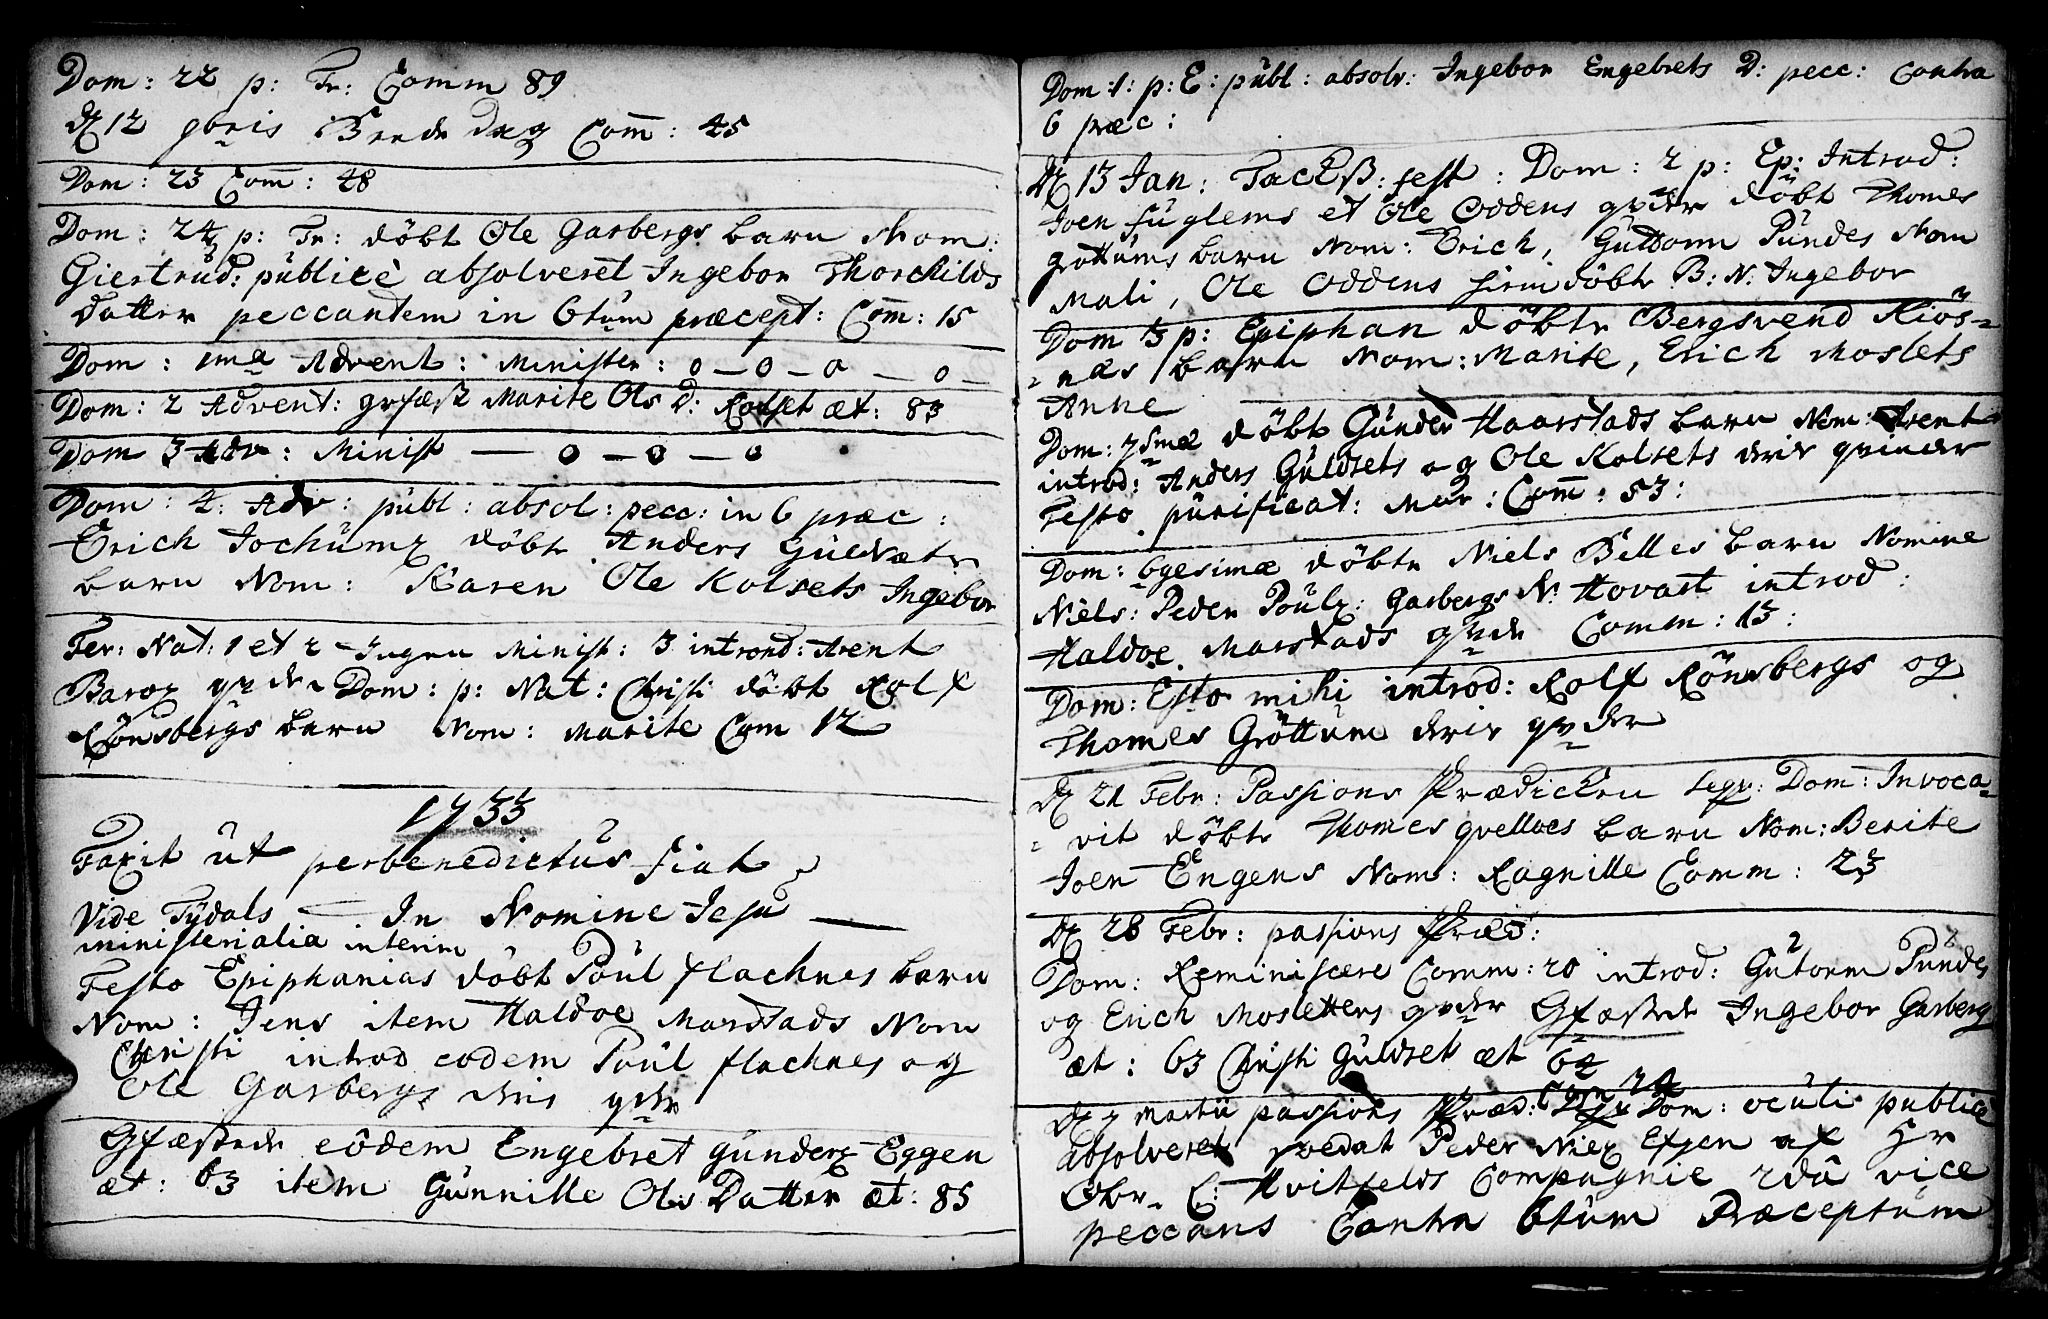 Dom: 22 p: Tr: Comm 89
d 12 9bris Beede dag Com̄: 45
Dom: 23 Com̄: 48
Dom: 24 p: Tr: döbt Ole Garbergs barn Nom:
Giertrud: publicè absolveret Ingebor Thorchilds
datter peccantem in 6tum præcept: Com̄: 15
Dom: 1ma Advent: Minister: o — o — o — o —
Dom: 2 Advent: grfæst Marite Ols D: Rotset æt: 83
Dom 3 Adv: Minist — o — o — o
Dom: 4: Adv: publ: absol: pecc: in 6 præc:
Erich Jochumz döbte Anders Guldsæts
barn Nom: Karen Ole Kolsets Ingebor
Fer: Nat: 1 et 2 Ingen Minist: 3 introd: Arent
Baroz qvde Dom: p: Nat: Christi döbt Rolf
Rönsbergs barn Nom: Marite Com 12
1733
Faxit ut perbenedictus fiat
Vide Tydals — In Nomine Jesu —
ministerialia interim
Festo Epiphanias döbt Poul flachnes barn
Nom: Jens item Haldoe Marstads Nom
Christi introd eodem Poul flachnes og
Ole Garbergs deris qvdr
Gfæstede eôdem Engebret Gunderz Eggen
æt: 63 item Gunnille Ols Datter æt: 85
Dom: 1: p: E: publ: absolv: Ingebor Engebrets D: pecc: Contra
6 præc:
d 13 Jan: Tackß: fest: Dom: 2 p: Ep: Introd:
Joen fuglems et Ole Oddens qvder döbt Thomes
Gröttums barn Nom: Erich, Guttorm Pundes Nom
Mali, Ole Oddens döbte B: N: Ingebor
Dom 3 p: Epiphan döbte Bergsvend Kiös-
-nes barn Nom: Marite, Erich Moslets
Anne
Dom: 7smæ döbt Gunder Haarstads barn Nom: Arent
introd: Anders Guldsets og Ole Kolsets deris qvinder
Festo purificat: Mar: Com̄: 53:
Dom: 6gesimæ döbte Niels Belles barn Nomine
Niels: Peder Poulz: Garbergs N: Hovart introd:
Haldoe Marstads qvde Comm: 13:
Dom: Esto mihi introd: Rolf Rönsbergs og
Thomes Gröttum deris qvder
d 21 Febr: Passions Prædicken Segv: Dom: Invoca-
-vit döbte Thomes qvelloes barn Nom: Berite
Joen Engens Nom: Ragnille Comm: 23
d 28 Febr: passions Præd:
Dom: Reminiscere Comm: 20 introd: Gutorm Pundes
og Erich Mosletters qvder Gfæstede Ingebor Garberg
æt: 63 Christi Guldset æt 64
d 7 Martii passions Præd: Dom: oculi publicè
absolveret soldat Peder Niez Efjen af Hr
Obr. C: Hvitfelds Compagnie 2dâ vice
peccans Contra 6tum Præceptum